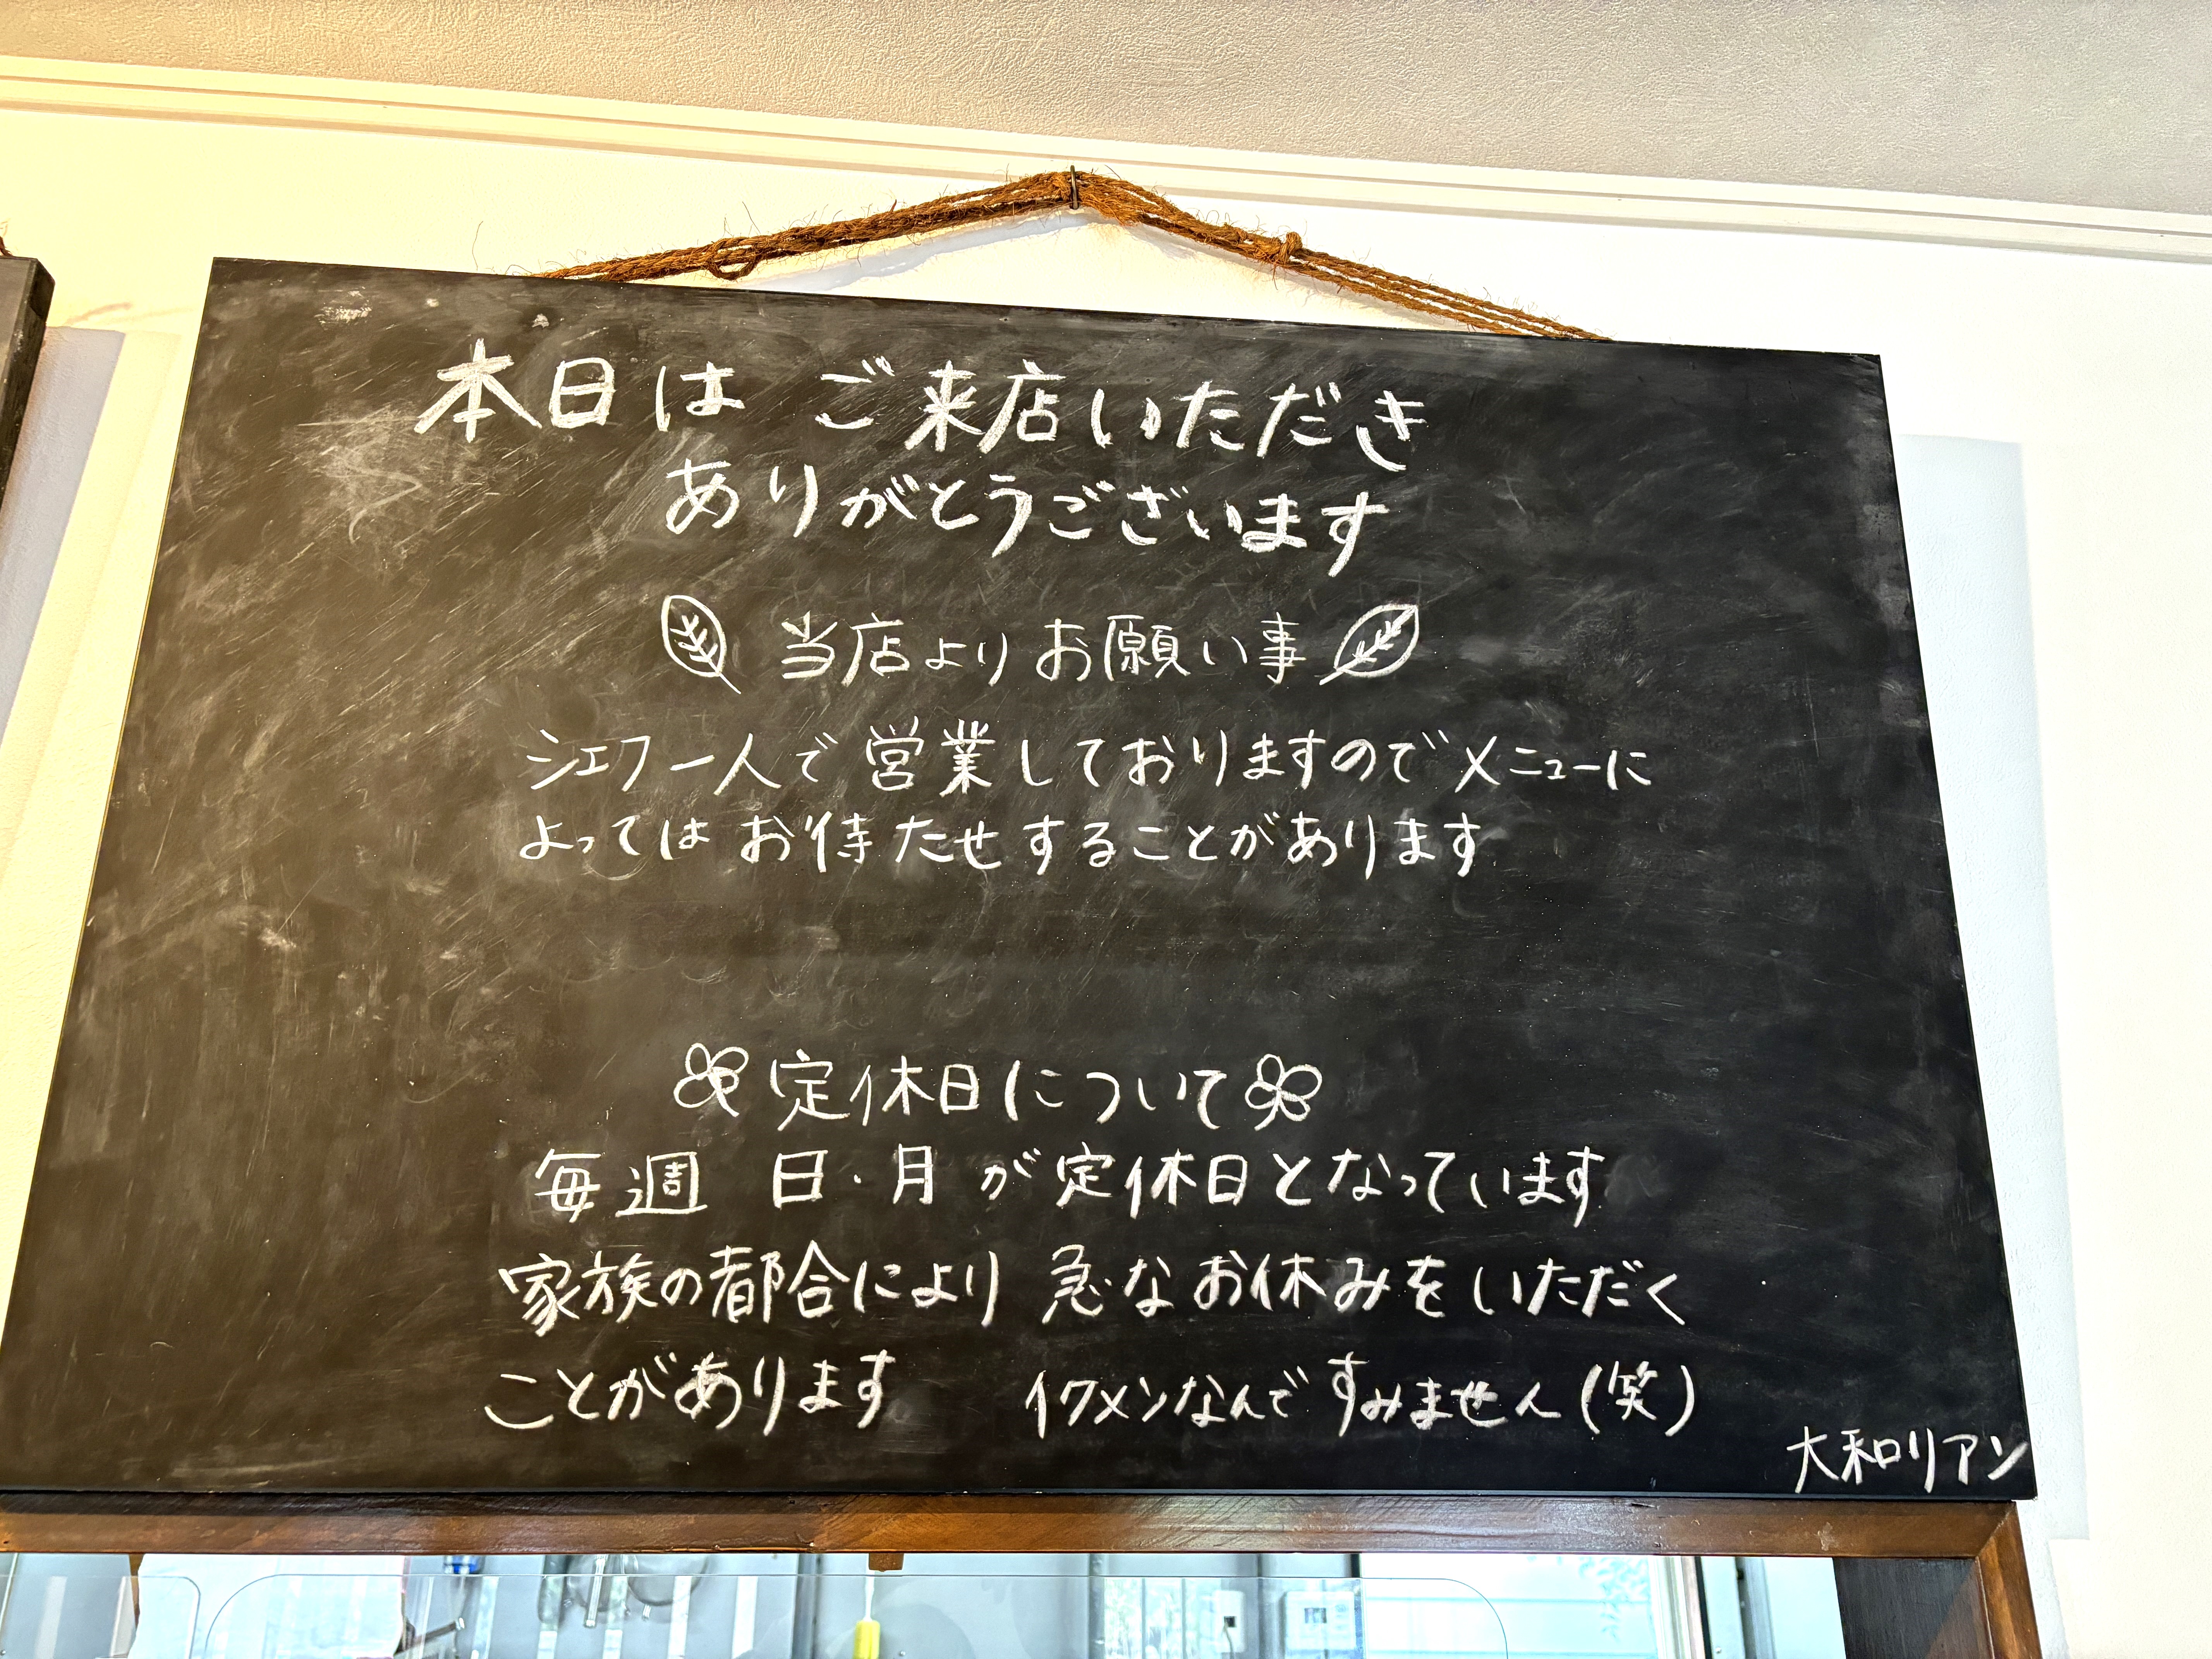 本日は ご来店いただき
ありがとうございます
当店より お願い事
シェフ一人で 営業しておりますのでメニューに
よっては お待たせすることがあります
定休日について
毎週 日・月 が定休日となっています
家族の都合により 急な お休みを いただく
ことがあります イクメンなんで すみません(笑)
大和リアン